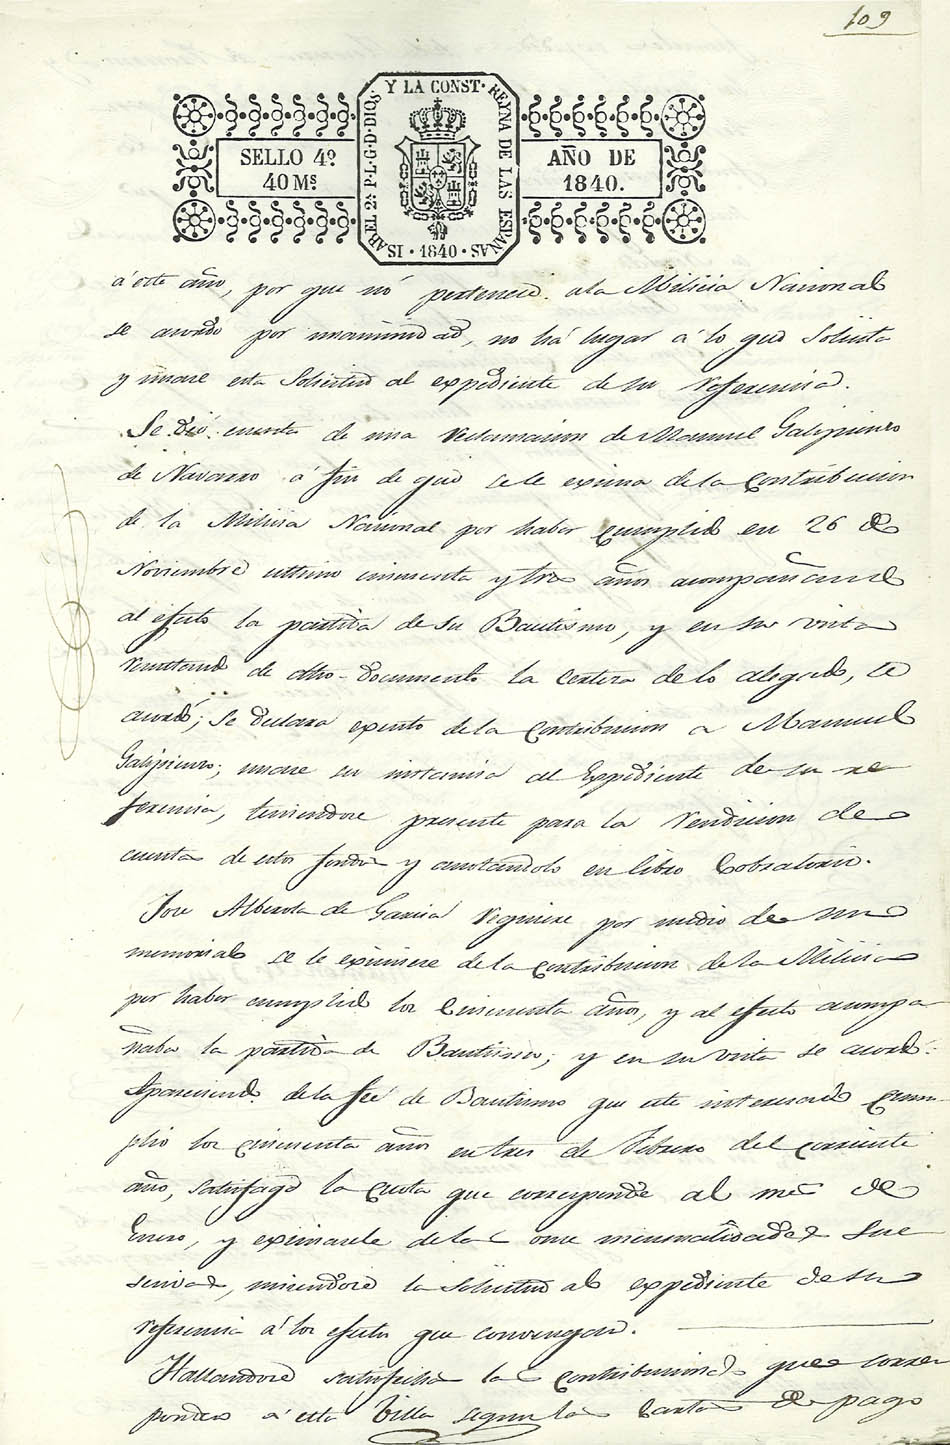 109
ISABEL 2ª P·L·G·D·DIOS· Y LA CONST· REYNA DE LAS ESPAÑAS
SELLO 4º
40 Mˢ
AÑO DE
1840.
· 1840 ·
á este año, por que nó pertenece á la Milicia Nacional
se acordó por unanimidad, no há lugar á lo que solicita
y unase esta solicitud al expediente de su referencia.
Se dió cuenta de una reclamacion de Manuel Galipienzo
de Navarro á fin de que se le exima de la Contribucion
de la Milicia Nacional por haber cumplido en 26 de
Noviembre ultimo cincuenta y tres años acompañando
al efecto la partida de su Bautismo, y en su vista
resultando de dho documento la certeza de lo alegado, se
acordó; se declara exento de la Contribucion a Manuel
Galipienzo; unase su instancia al Expediente de su re
ferencia, teniendose presente para la rendicion de
cuentas de estos fondos y anotandolo en libro Cobratorio.
Jose Alberola de Garcia requiere por medio de un
memorial se le eximiese de la contribucion de la Milicia
por haber cumplido los Cincuenta años, y al efecto acompa
ñaba la partida de Bautismo; y en su vista se acordó:
Apareciendo de la feé de Bautismo que este interesado cum
plió los cincuenta años en tres de Febrero del corriente
año, satisfaga la cuota que corresponde al mes de
Enero, y eximasele de las once mensualidades suc
sesivas, uniendose la solicitud al expediente de su
referencia á los efectos que convengan.
Hallandose satisfechas las contribuciones que corres
ponden á esta Villa segun las Cartas de pago